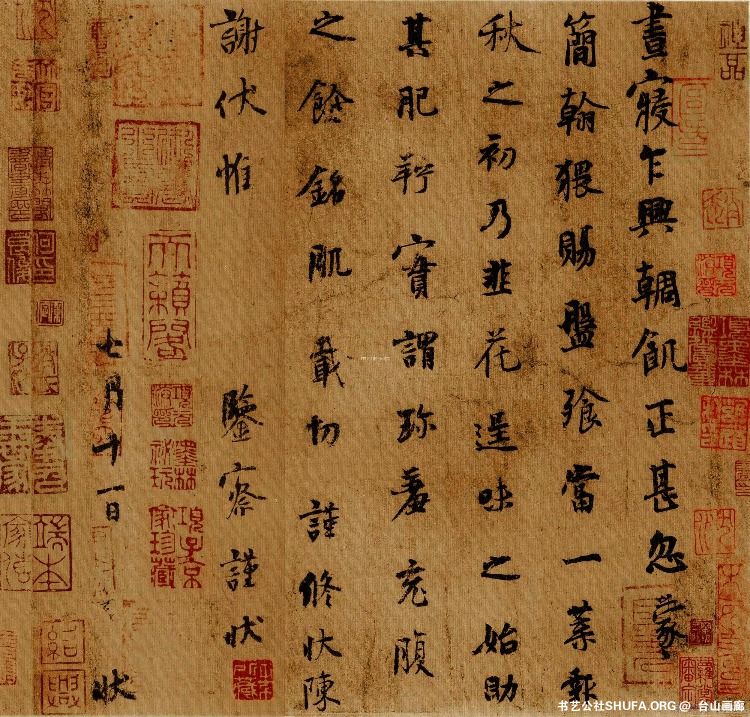 晝寢乍興輖飢正甚忽蒙
簡翰猥賜盤飧當一葉報
秋之初乃韭花逞味之始助
其肥羜實謂珍羞充腹
之餘銘肌載切謹修狀陳
謝伏惟 鑒察謹狀
七月十一日 狀
天籟閣
墨林祕玩
項子京家珍藏
紹興
书艺公社SHUFA.ORG @ 台山画廊